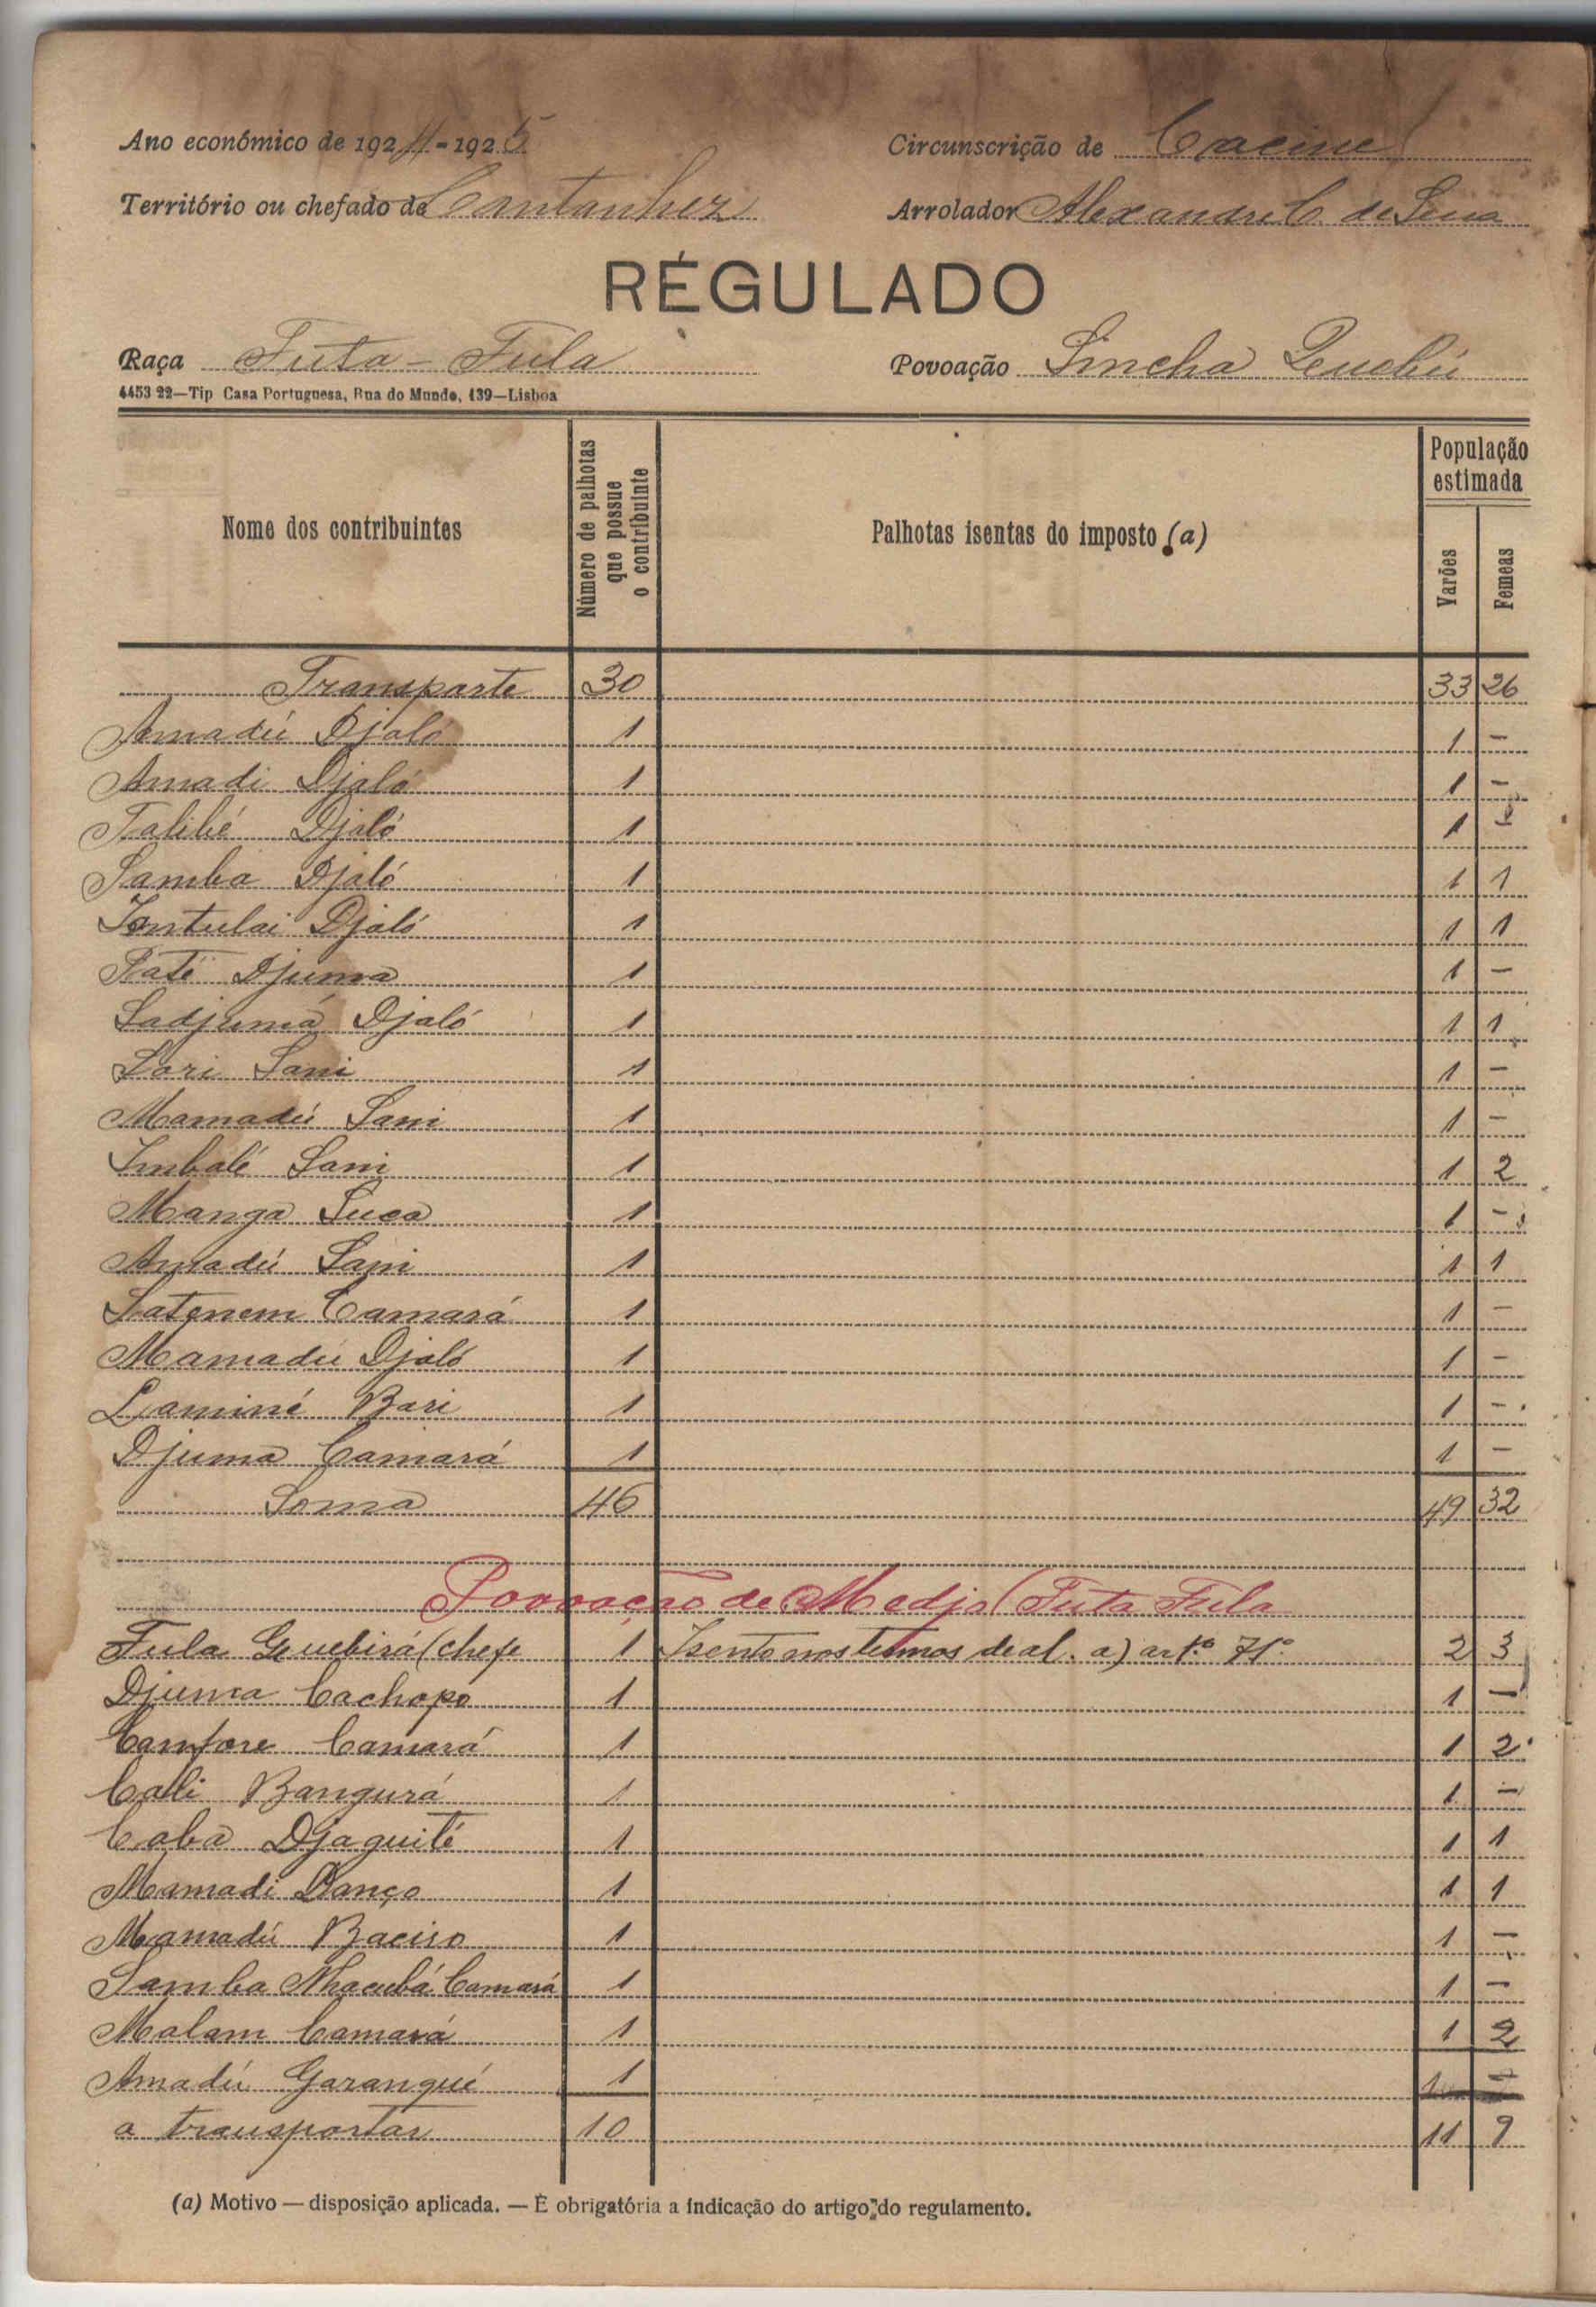 Ano económico de 1924-1925 Circunscrição de Cacine
Território ou chefado de Cantanhez Arrolador Alexandre C. de Sena
RÉGULADO
Raça Futa-Fula Povoação Sincha Quebú
4453 22—Tip Casa Portuguesa, Rua do Mundo, 139—Lisboa
Nome dos contribuintes Número de palhotas que possue o contribuinte Palhotas isentas do imposto (a) População estimada Varões Femeas
Transporte 30 33 26
Amadú Djaló 1 1 -
Amadi Djaló 1 1 -
Talibé Djaló 1 1 -
Samba Djaló 1 1 1
Djaló 1 1 1
Paté Djuma 1 1 -
Sadjumá Djaló 1 1 1
Sori Sani 1 1 -
Mamadú Sani 1 1 -
Imbalé Sani 1 1 2
Manga Suca 1 1 -
Amadú Sani 1 1 1
Satenem Camará 1 1 -
Mamadú Djaló 1 1 -
Laminé Bari 1 1 -
Djuma Camará 1 1 -
Soma 46 49 32
Povoação de Medjo (Futa Fula
Fula Guebirá (chefe 1 Isento nos termos de al. a) artº 71º 2 3
Djuma Cachopo 1 1 -
Canfore Camará 1 1 2
Cali Bangurá 1 1 -
Coba Djaguité 1 1 1
Mamadi Danço 1 1 1
Mamadú Baciro 1 1 -
Samba Macubá Camará 1 1 -
Malam Camará 1 1 2
Amadú Garangué 1 1 -
a transportar 10 11 9
(a) Motivo — disposição aplicada. — É obrigatória a indicação do artigo do regulamento.